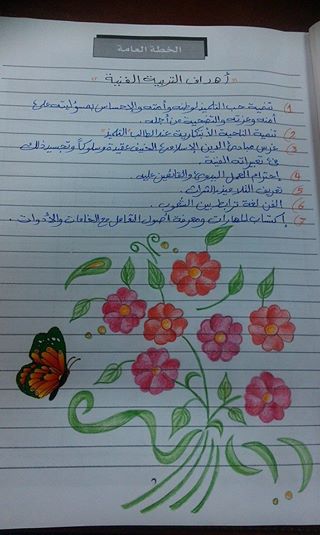 الخطة العامة
" أهداف التربية الفنية "
1) تنمية حب التلميذ لوطنه وأمته والإحساس بمسؤليته على
أمنه وعزته والتضحية من أجله .
2) تنمية الناحية الابتكارية عند الطالب "التلميذ"
3) غرس مبادئ الدين الإسلامي الحنيف عقيدة وسلوكاً وتجسيد ذلك
في تعبيراته الفنية .
4) إحترام العمل اليدوي والقائمين عليه .
5) تعريف التلاميذ بالتراث .
6) الفن لغة ترابط بين الشعوب .
7) إكتساب المهارات ومعرفة أصول التعامل مع الخامات والأدوات .